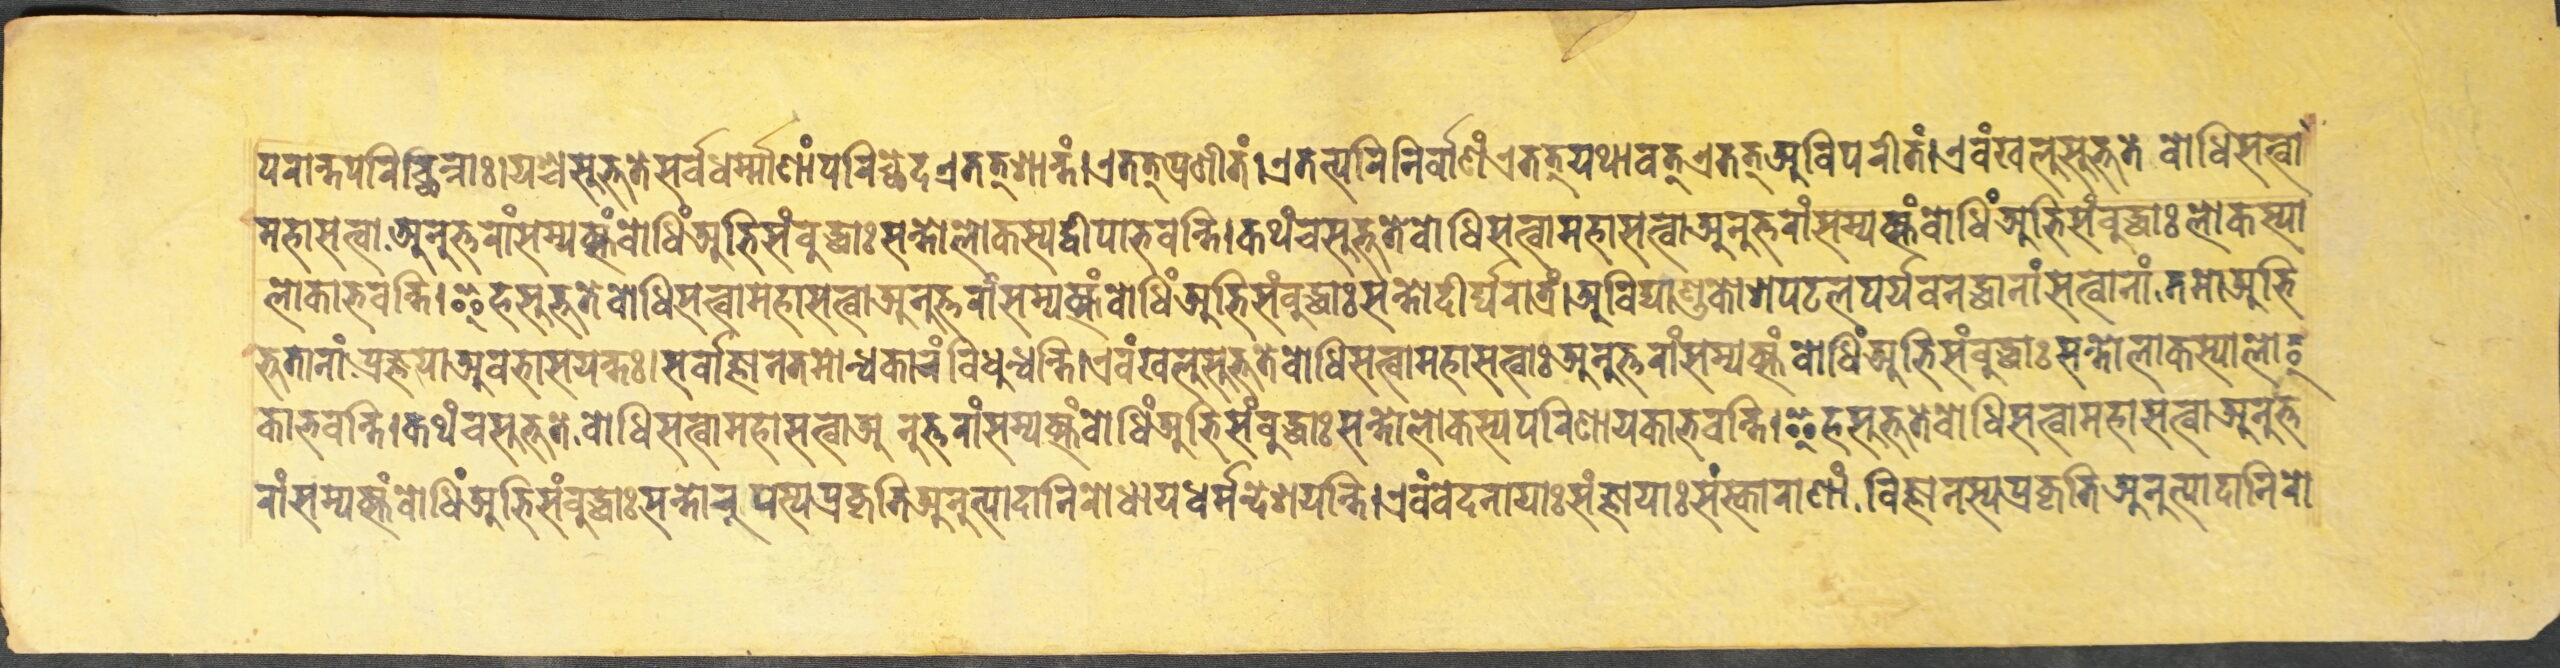 परान्तपरिच्छिन्नाः।यश्चसुभूतेसर्वधर्म्माणांपरिच्छेदएतत्शान्तं।एतत्प्रणीतं।एतत्परिनिर्वाणंएतत्यथावत्एतत्अविपरीतं।एवंखलुसुभूते बोधिसत्त्वा
महासत्त्वा अनुत्तरांसम्यक्संबोधिंअभिसंबुद्धाःसन्तोलोकस्यद्वीपाभवन्ति।कथंचसुभूतेबोधिसत्त्वामहासत्त्वाअनुत्तरांसम्यक्संबोधिंअभिसंबुद्धाःलोकस्या
लोकाभवन्ति।इहसुभूतेबोधिसत्त्वामहासत्त्वाअनुत्तरांसम्यक्संबोधिंअभिसंबुद्धाःसन्तोदीर्घरात्रं।अविद्याण्डकोशपटलपर्यवनद्धानांसत्त्वानांतमोअभि
भूतानांप्रज्ञयाअवभासयन्तः।सर्वाज्ञानतमोन्धकारंविधुन्वन्ति।एवंखलुसुभूतेबोधिसत्त्वामहासत्त्वाःअनुत्तरांसम्यक्संबोधिंअभिसंबुद्धाःसन्तोलोकस्यालो
काभवन्ति।कथंचसुभूतेबोधिसत्त्वामहासत्त्वाअनुत्तरांसम्यक्संबोधिंअभिसंबुद्धाःसन्तोलोकस्यपरिणायकाभवन्ति।इहसुभूतेबोधिसत्त्वामहासत्त्वाअनुत्त
रांसम्यक्संबोधिंअभिसंबुद्धाःसन्तोरूपस्यप्रकृतिअनुत्पादानिरोधायधर्मन्देशयन्ति।एवंवेदनायाःसंज्ञायाःसंस्काराणां विज्ञानस्यप्रकृतिअनुत्पादानिरो